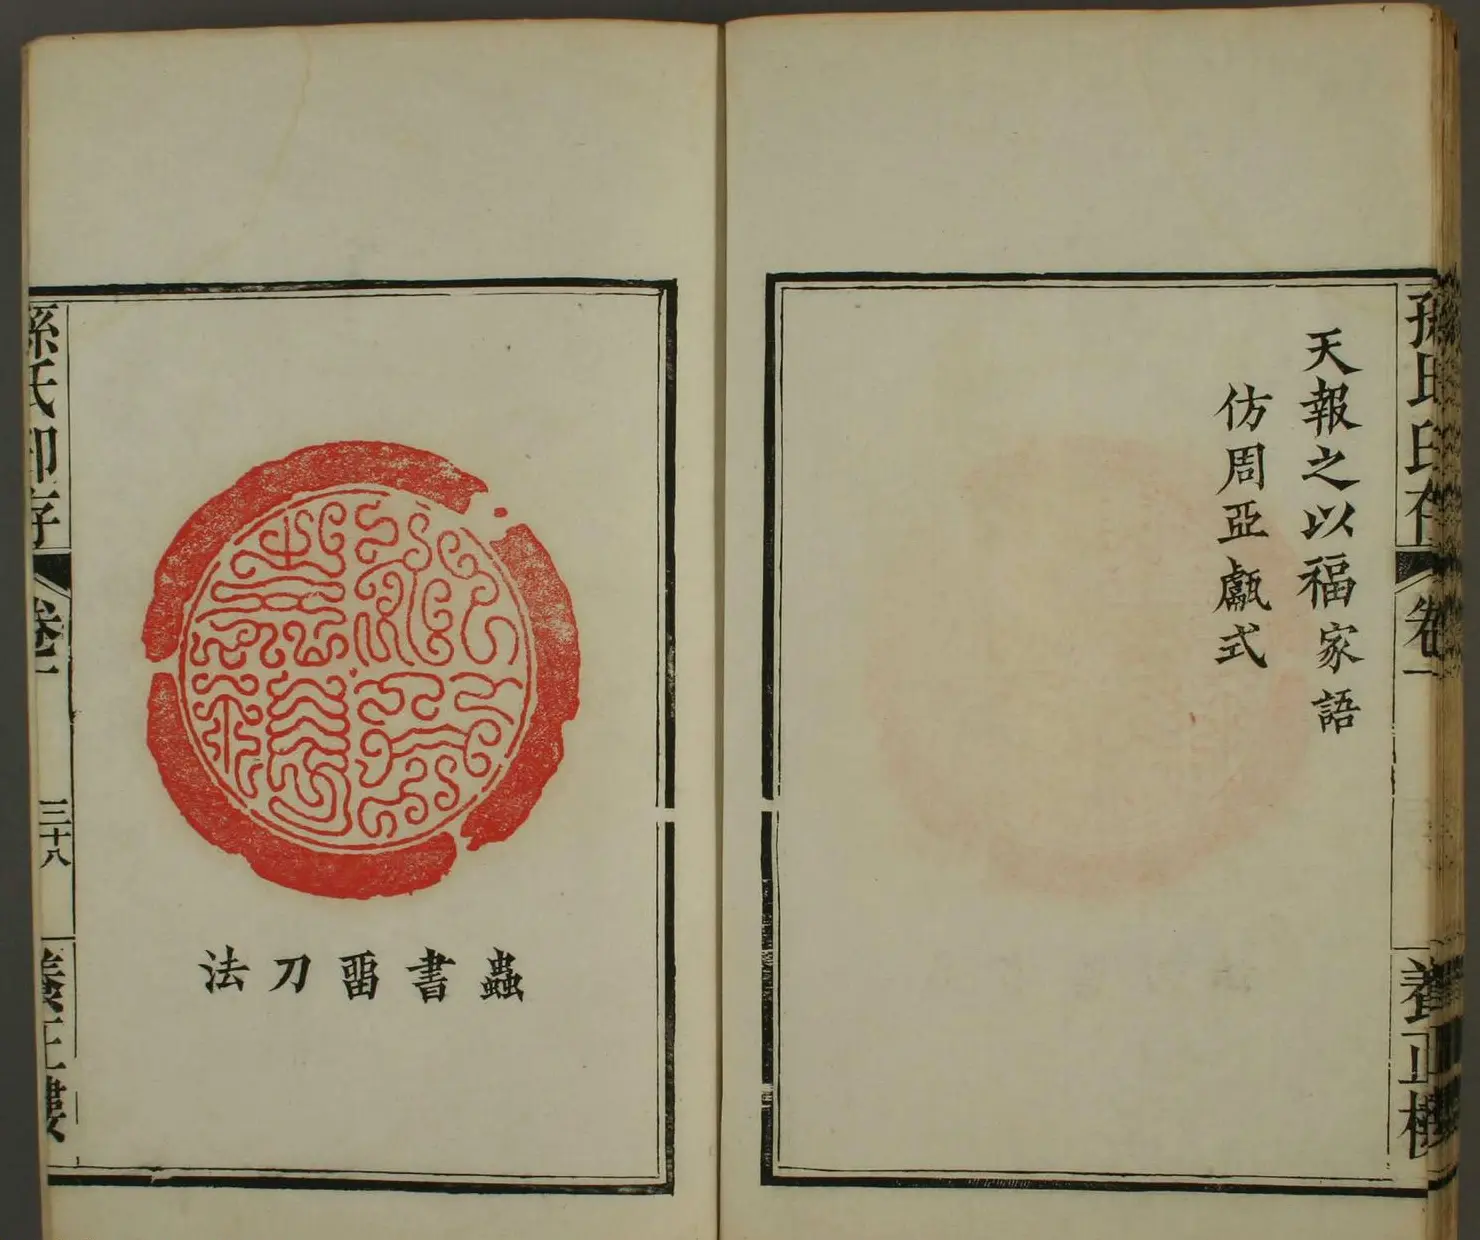 孫氏印存
卷一
養正樓
天報之以福家語
仿周亞甗式
蟲書畱刀法
孫氏印存
卷一
三十八
養正樓